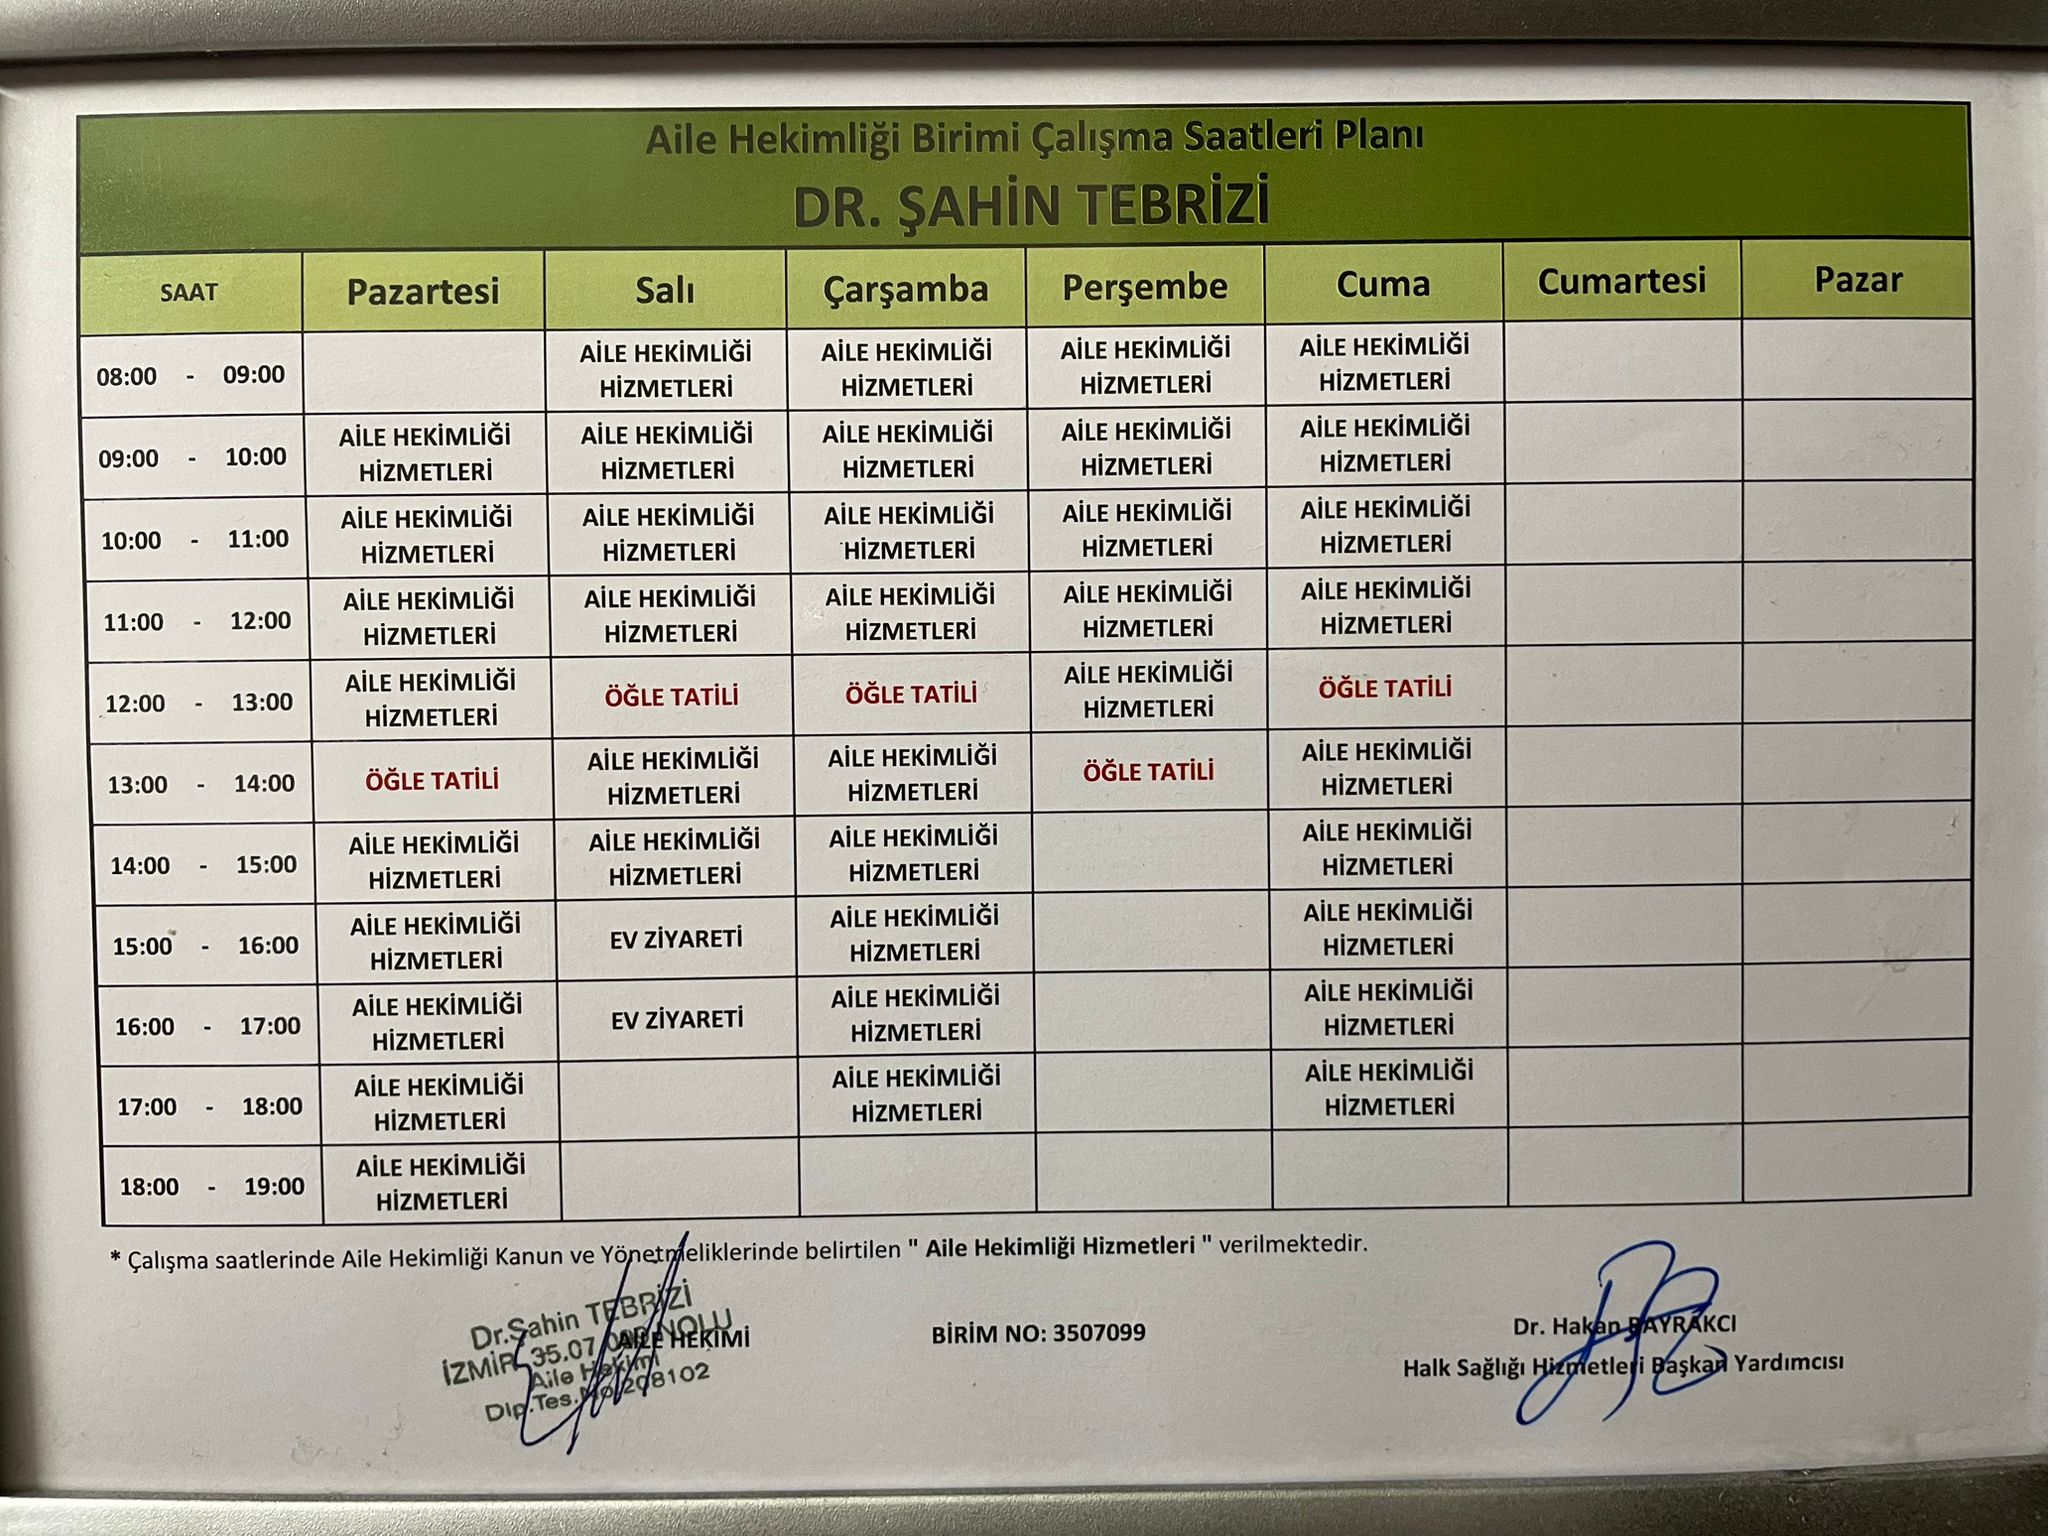 Aile Hekimliği Birimi Çalışma Saatleri Planı
DR. ŞAHİN TEBRİZİ
SAAT Pazartesi Salı Çarşamba Perşembe Cuma Cumartesi Pazar
08:00 - 09:00 AİLE HEKİMLİĞİ HİZMETLERİ AİLE HEKİMLİĞİ HİZMETLERİ AİLE HEKİMLİĞİ HİZMETLERİ AİLE HEKİMLİĞİ HİZMETLERİ
09:00 - 10:00 AİLE HEKİMLİĞİ HİZMETLERİ AİLE HEKİMLİĞİ HİZMETLERİ AİLE HEKİMLİĞİ HİZMETLERİ AİLE HEKİMLİĞİ HİZMETLERİ AİLE HEKİMLİĞİ HİZMETLERİ
10:00 - 11:00 AİLE HEKİMLİĞİ HİZMETLERİ AİLE HEKİMLİĞİ HİZMETLERİ AİLE HEKİMLİĞİ HİZMETLERİ AİLE HEKİMLİĞİ HİZMETLERİ AİLE HEKİMLİĞİ HİZMETLERİ
11:00 - 12:00 AİLE HEKİMLİĞİ HİZMETLERİ AİLE HEKİMLİĞİ HİZMETLERİ AİLE HEKİMLİĞİ HİZMETLERİ AİLE HEKİMLİĞİ HİZMETLERİ AİLE HEKİMLİĞİ HİZMETLERİ
12:00 - 13:00 AİLE HEKİMLİĞİ HİZMETLERİ ÖĞLE TATİLİ ÖĞLE TATİLİ AİLE HEKİMLİĞİ HİZMETLERİ ÖĞLE TATİLİ
13:00 - 14:00 ÖĞLE TATİLİ AİLE HEKİMLİĞİ HİZMETLERİ AİLE HEKİMLİĞİ HİZMETLERİ ÖĞLE TATİLİ AİLE HEKİMLİĞİ HİZMETLERİ
14:00 - 15:00 AİLE HEKİMLİĞİ HİZMETLERİ AİLE HEKİMLİĞİ HİZMETLERİ AİLE HEKİMLİĞİ HİZMETLERİ AİLE HEKİMLİĞİ HİZMETLERİ
15:00 - 16:00 AİLE HEKİMLİĞİ HİZMETLERİ EV ZİYARETİ AİLE HEKİMLİĞİ HİZMETLERİ AİLE HEKİMLİĞİ HİZMETLERİ
16:00 - 17:00 AİLE HEKİMLİĞİ HİZMETLERİ EV ZİYARETİ AİLE HEKİMLİĞİ HİZMETLERİ AİLE HEKİMLİĞİ HİZMETLERİ
17:00 - 18:00 AİLE HEKİMLİĞİ HİZMETLERİ AİLE HEKİMLİĞİ HİZMETLERİ AİLE HEKİMLİĞİ HİZMETLERİ
18:00 - 19:00 AİLE HEKİMLİĞİ HİZMETLERİ
* Çalışma saatlerinde Aile Hekimliği Kanun ve Yönetmeliklerinde belirtilen " Aile Hekimliği Hizmetleri " verilmektedir.
Dr.Şahin TEBRİZİ
İZMİR 35.07 NOLU
Aile Hekimi
Dip.Tes.No 208102
AİLE HEKİMİ
BİRİM NO: 3507099
Dr. Hakan BAYRAKCI
Halk Sağlığı Hizmetleri Başkan Yardımcısı